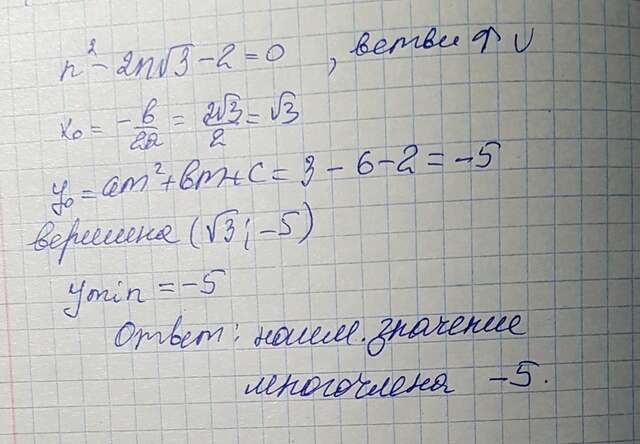 n² - 2n√3 - 2 = 0 , ветви ↑ ∪
x₀ = -b/2a = 2√3/2 = √3
y₀ = am² + bm + c = 3 - 6 - 2 = -5
вершина (√3; -5)
ymin = -5
Ответ: наим. значение
многочлена -5.